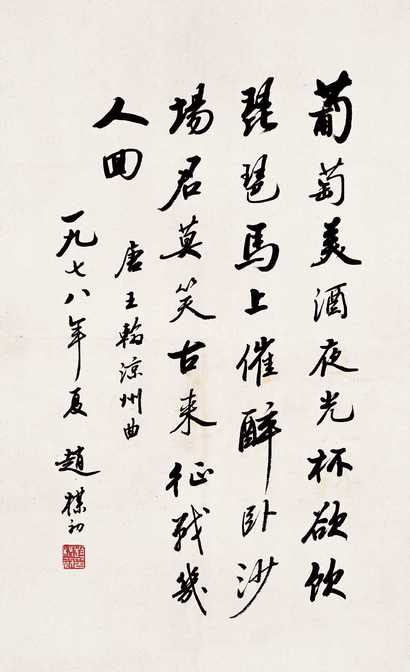 葡萄美酒夜光杯欲饮
琵琶馬上催醉卧沙
場君莫笑古来征战幾
人回
唐王翰凉州曲
一九七八年夏趙樸初